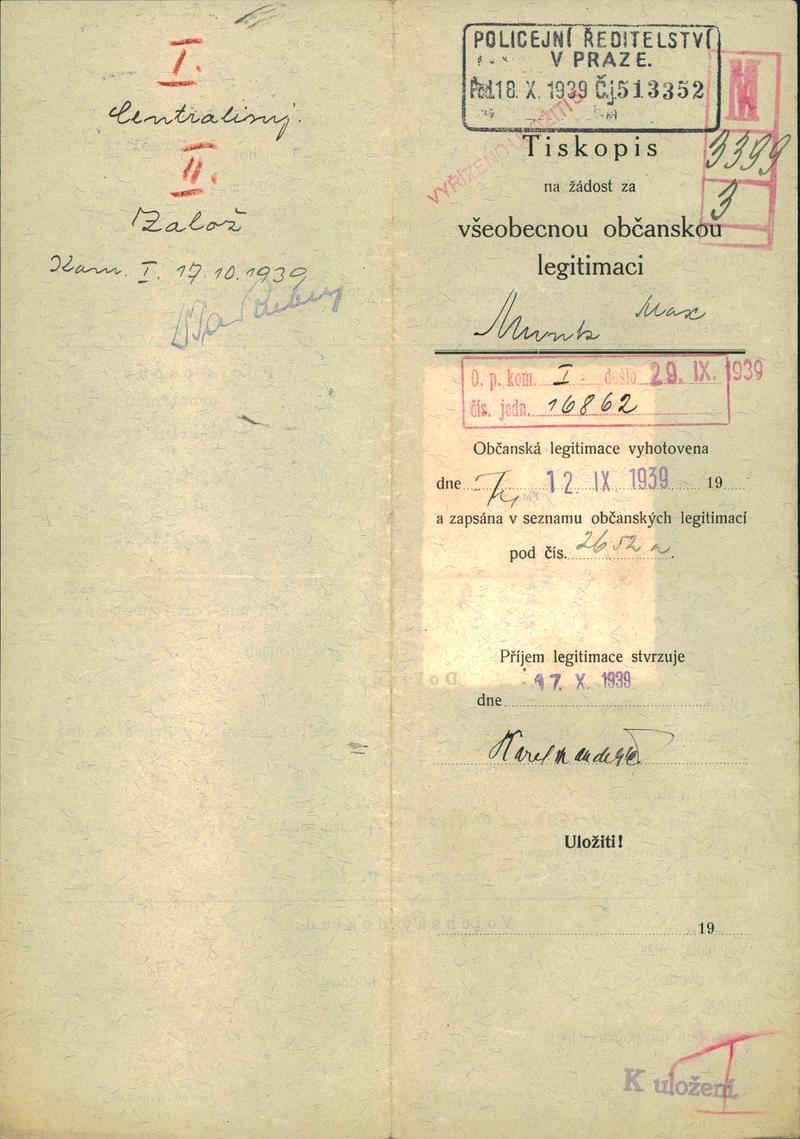 I.
II.
Založ
Kom. I. 17.10.1939
POLICEJNÍ ŘEDITELSTVÍ
V PRAZE.
18. X. 1939 Čj 513352
M
3399
3
Tiskopis
na žádost za
všeobecnou občanskou
legitimaci
Munk Max
O. p. kom. I došlo 29. IX. 1939
čís. jedn. 16862
Občanská legitimace vyhotovena
dne 12. IX 1939 19
a zapsána v seznamu občanských legitimací
pod čís. 2652a.
Příjem legitimace stvrzuje
17. X. 1939
dne
Uložiti!
19
K uložení
I